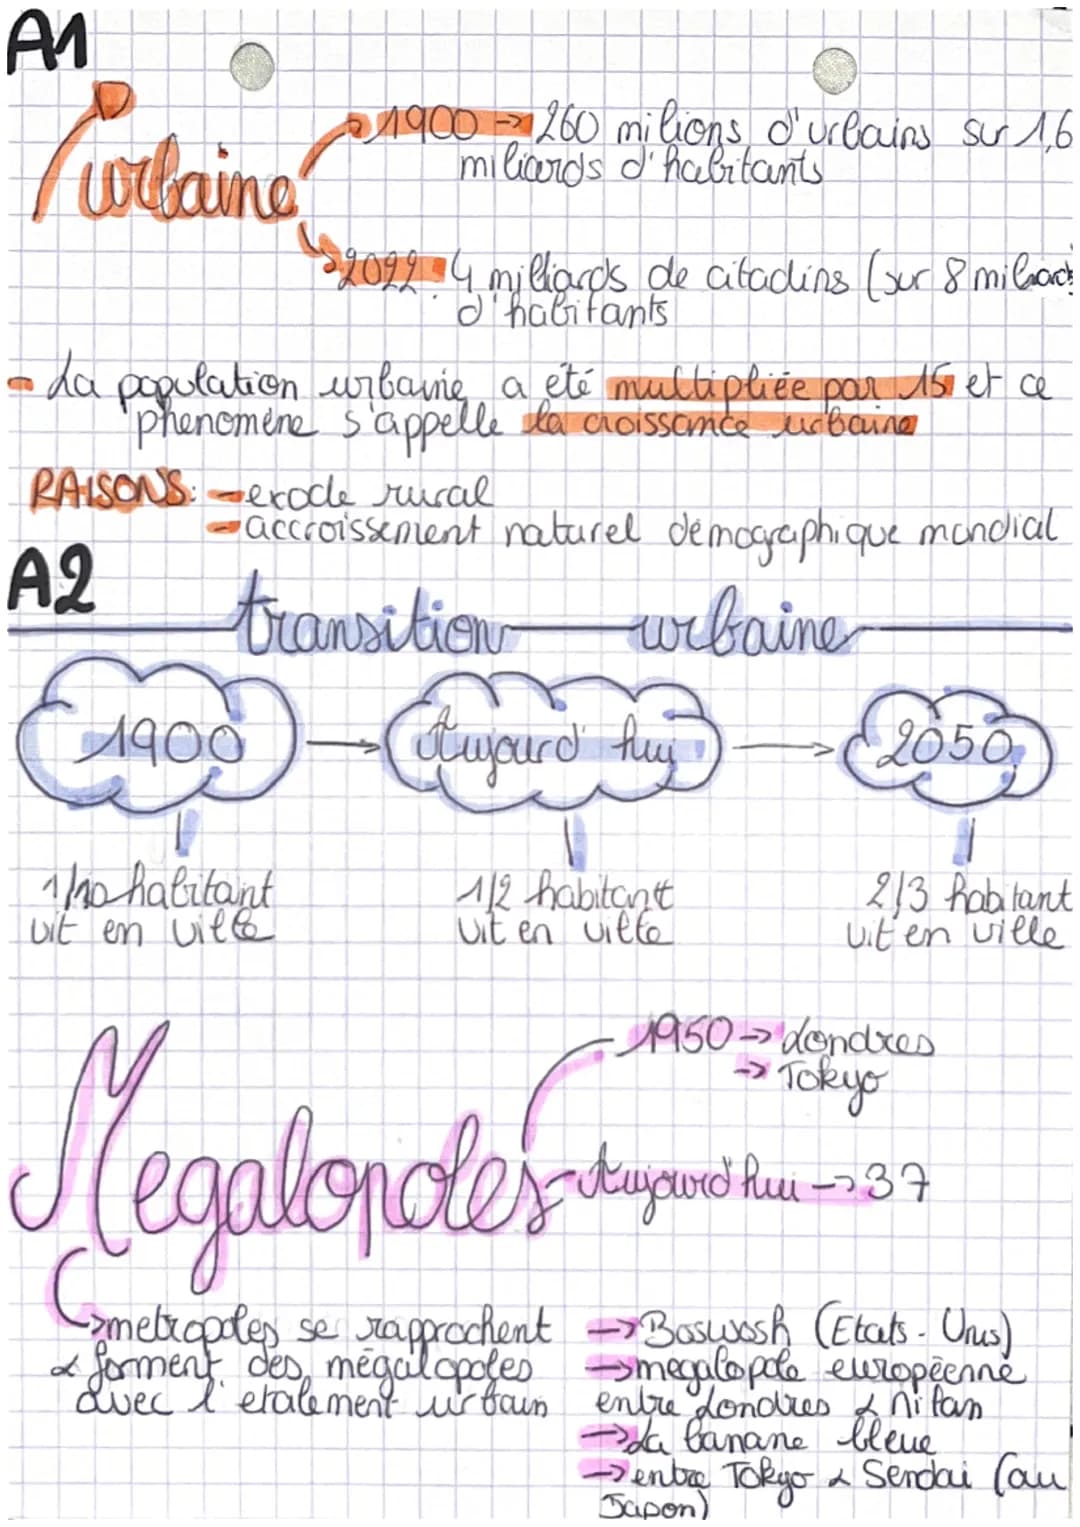 A1
↗ urbaine
1900 → 260 milions d'urbains sur 1,6
miliards d'habitants
2022 4 milliards de citadins (sur 8 miliards
d'habitants
- La population urbaine a été multipliée par 15 et ce
phenomène s'appelle la croissance urbaine
RAISONS: - exode rural
- accroissement naturel démographique mondial
A2
transition urbaine
1900 → Aujourd'hui → 2050
1/10 habitant 1/2 habitant 2/3 habitant
vit en ville vit en ville vit en ville
1950 → Londres
→ Tokyo
Megalopoles
Aujourd'hui → 37
↳ metropoles se rapprochent
& forment des mégalopoles
avec l'etalement urbain
→ Boswash (Etats-Unis)
→ megalopole européenne
entre Londres & Milan
→ La banane bleue
→ entre Tokyo & Sendai (au
Japon)